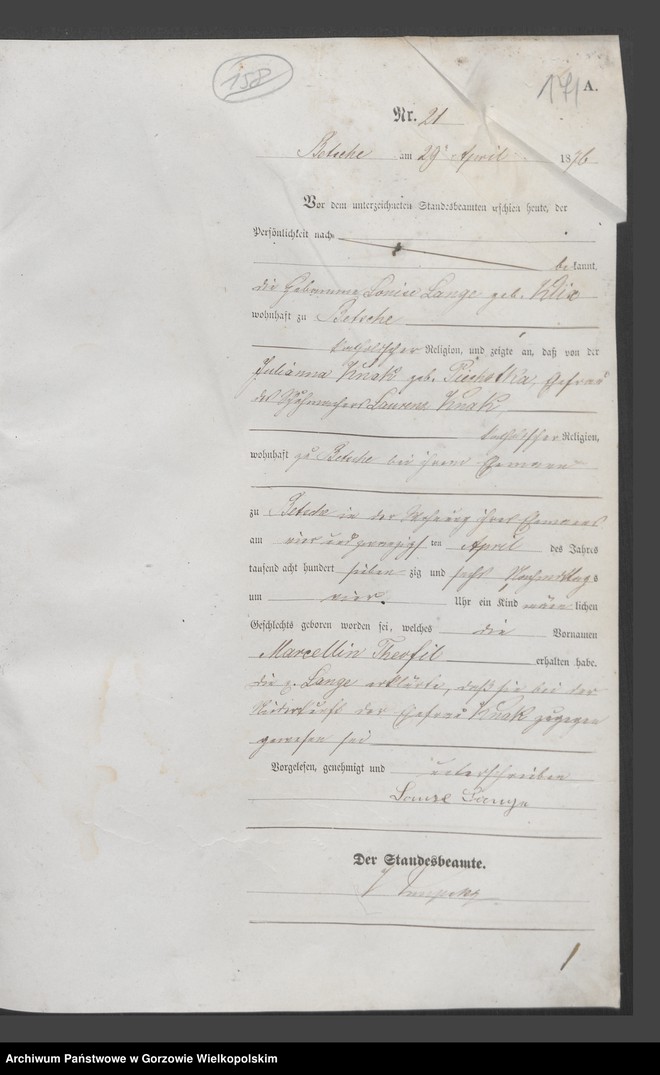 158
171 A.
Nr. 21
Betsche am 29 April 1876
Vor dem unterzeichneten Standesbeamten erschien heute, der
Persönlichkeit nach
bekannt,
die Hebamme Louise Lange geb. Klix
wohnhaft zu Betsche
katholischer Religion, und zeigte an, daß von der
Julianna Knak geb. Piechotka, Ehefrau
des Schuhmachers Laurenz Knak,
katholischer Religion,
wohnhaft zu Betsche bei ihrem Ehemann
zu Betsche in der Wohnung ihres Ehemannes
am vier und zwanzigsten April des Jahres
tausend acht hundert sieben zig und sechs Nachmittags
um vier Uhr ein Kind männlichen
Geschlechts geboren worden sei, welches die Vornamen
Marcellin Theofil erhalten habe.
die p. Lange erklärte, daß sie bei der
Niederkunft der Ehefrau Knak zugegen
gewesen sei
Vorgelesen, genehmigt und unterschrieben
Lange
Der Standesbeamte.
1
Archiwum Państwowe w Gorzowie Wielkopolskim